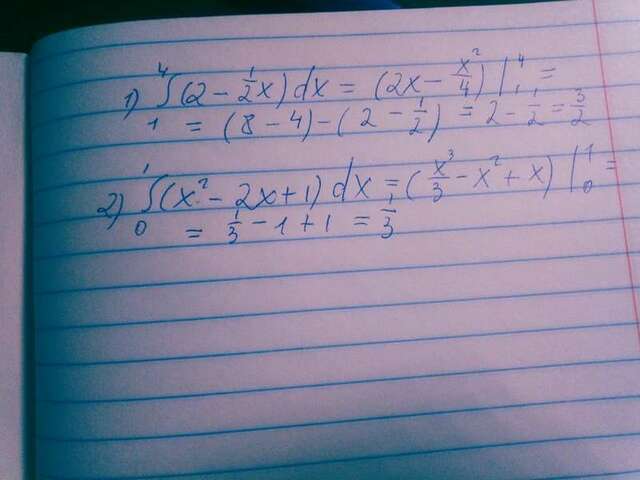 1) ∫₁⁴ (2 - 1/2 x) dx = (2x - x²/4) |₁⁴ =
= (8 - 4) - (2 - 1/2) = 2 - 1/2 = 3/2
2) ∫₀¹ (x² - 2x + 1) dx = (x³/3 - x² + x) |₀¹ =
= 1/3 - 1 + 1 = 1/3